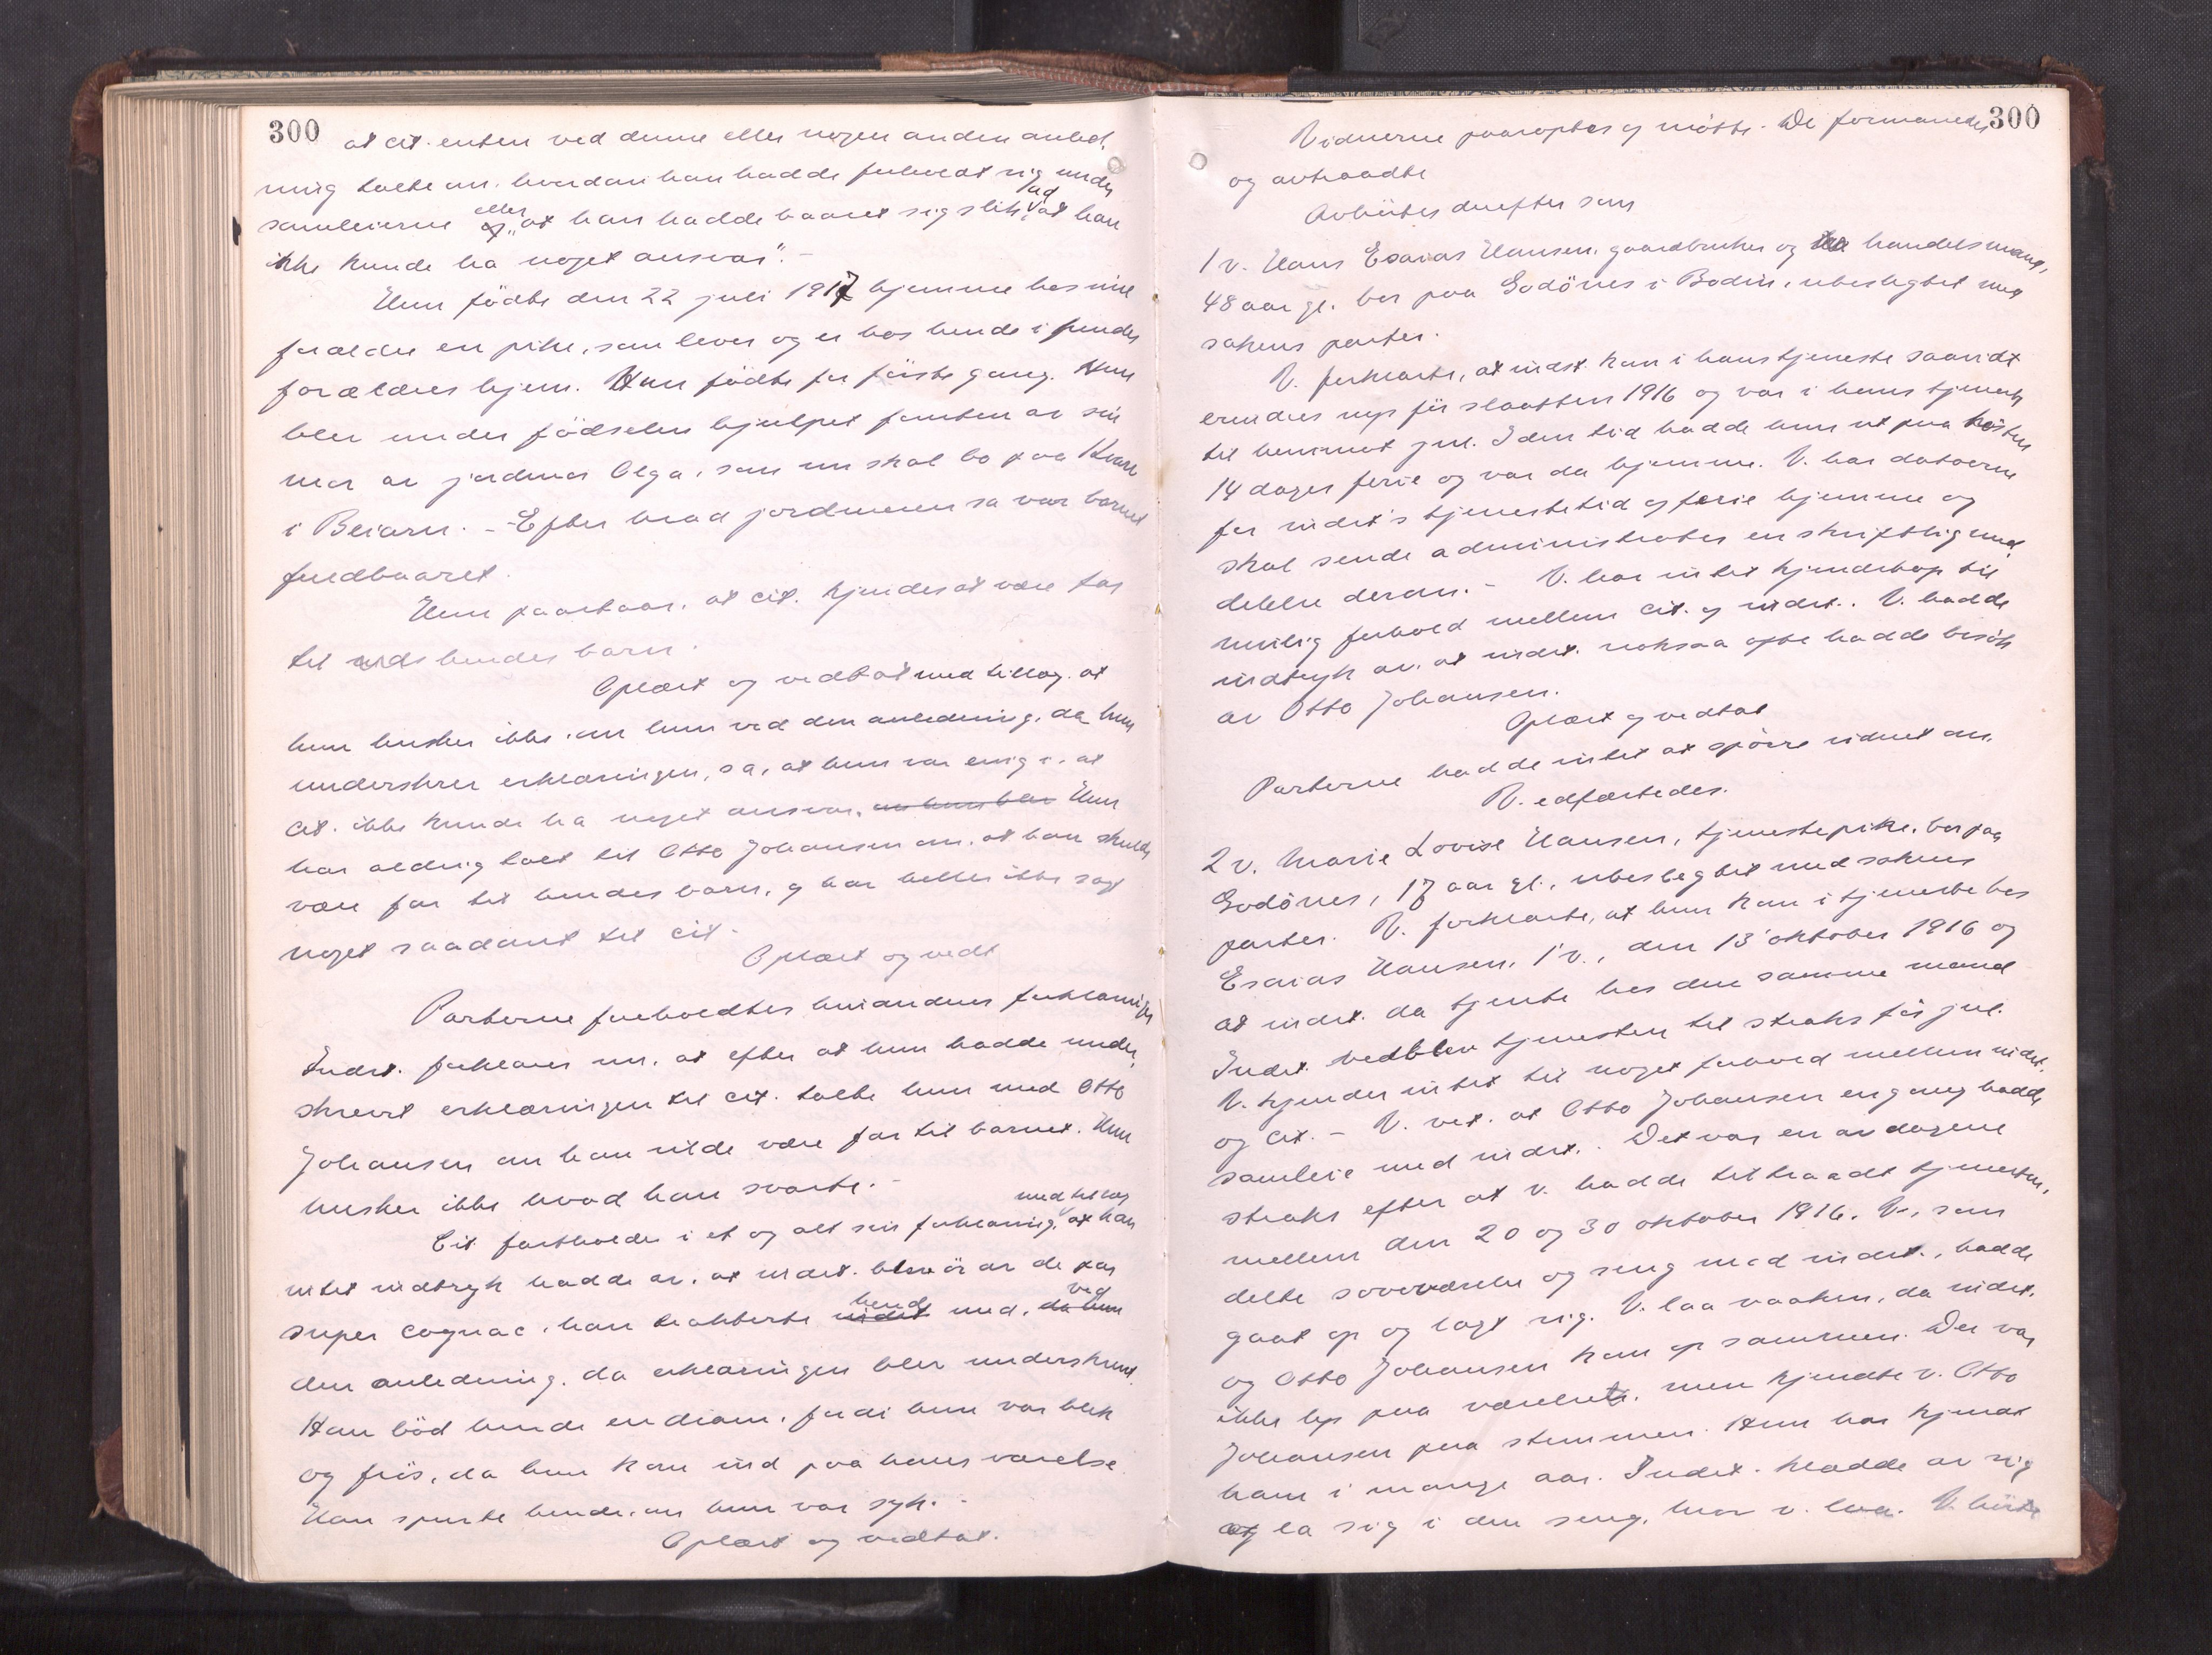 300
at cit. enten ved denne eller nogen anden anled,
ning talte om, hvordan han hadde forholdt sig under
samleierne eller "at han hadde baaret sig slik ad at han
ikke kunde ha noget ansvar". –
Hun fødte den 22 juli 1917 hjemme hos sine
forældre en pike, som lever og er hos hende i hendes
forældres hjem. Hun fødte for første gang. Hun
blev under fødselen hjulpet foruten av sin
mor av jordmor Olga, som nu skal bo paa
i Beiarn. – Efter hvad jordmoren sa var barnet
fuldbaaret.
Hun paastaar, at cit. kjendes at være far
til hendes barn.
Oplæst og vedtat med tillæg, at
hun husker ikke, om hun ved den anledning, da hun
underskrev erklæringen, sa, at hun var enig i, at
cit. ikke kunde ha noget ansvar. Hun
har aldrig talt til Otto Johansen om, at han skulde
være far til hendes barn, og har heller ikke sagt
noget saadant til cit. –
Oplæst og vedt
Parterne foreholdtes hinandens forklaringer
Indst. forklarer nu, at efter at hun hadde under,
skrevet erklæringen til cit. talte hun med Otto
Johansen om han vilde være far til barnet. Hun
husker ikke hvad han svarte. –
Cit fastholder i et og alt sin forklaring, med tillæg at han
intet indtryk hadde av, at indst. blev ør av de par
super cognac, han trakterte hende med, ved
den anledning, da erklæringen blev underskrevet.
Han bød hende en dram, fordi hun var blek
og frøs, da hun kom ind paa hans værelse.
Han spurte hende, om hun var syk. –
Oplæst og vedtat.
300
Vidnerne paaroptes og møtte. De formanedes
og avtraadte
Avhørtes derefter som
1 v. Hans Esaias Hansen, gaardbruker og handelsmand,
48 aar gl. bor paa Godönes i Bodin, ubeslegtet med
sakens parter.
V. forklarte, at indst. kom i hans tjeneste saavidt
erindres nys før slaatten 1916 og var i hans tjeneste
til henimot jul. I den tid hadde hun ut paa høsten
14 dages ferie og var da hjemme. V. har datoerne
for indst's tjenestetid og ferie hjemme og
skal sende administrator en skriftlig med,
delelse derom. – V. har intet kjendskap til
mulig forhold mellem cit. og indst. V. hadde
indtryk av, at indst. noksaa ofte hadde besøk
av Otto Johansen.
Oplæst og vedtat
Parterne hadde intet at spørre vidnet om.
V. edfæstedes.
2 v. Marie Lovise Hansen, tjenestepike, bor paa
Godönes, 17 aar gl., ubeslegtet med sakens
parter. V. forklarte, at hun kom i tjeneste hos
Esaias Hansen, 1' v., den 13' oktober 1916 og
at indst. da tjente hos den samme mand
Indst. vedblev tjenesten til straks før jul.
V. kjender intet til noget forhold mellem indst.
og cit. – V. vet, at Otto Johansen engang hadde
samleie med indst. Det var en av dagene
straks efter at v. hadde tiltraadt tjenesten,
mellem den 20 og 30 oktober 1916. V., som
delte soveværelse og seng med indst., hadde
gaat op og lagt sig. V. laa vaaken, da indst.
og Otto Johansen kom op sammen. Der var
ikke lys paa værelset, men kjendte v. Otto
Johansen paa stemmen. Hun har kjendt
ham i mange aar. Indst. klædde av sig
og la sig i den seng, hvor v. laa. V. hørte